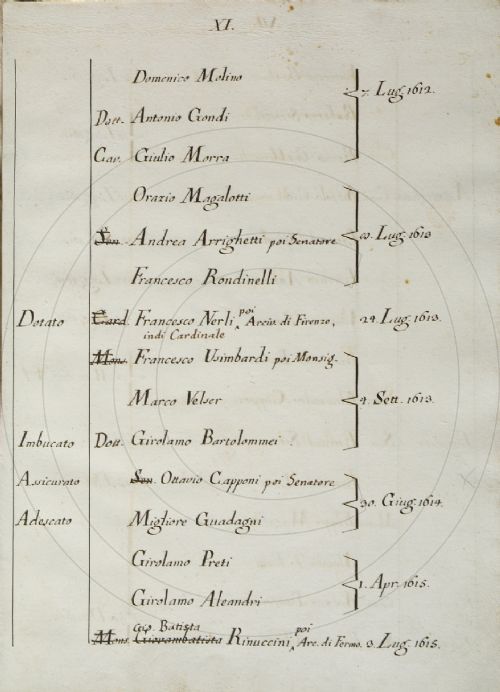 XI.
Domenico Molino
7. Lug. 1612.
Dott. Antonio Gondi
Cav. Giulio Morra
Orazio Magalotti
Sen. Andrea Arrighetti poi Senatore
Lug. 1613
Francesco Rondinelli
Dotato Card. Francesco Nerli poi Arciv. di Firenze, 24. Lug. 1613.
indi Cardinale
Mons. Francesco Usimbardi poi Monsig.
Marco Velser 4. Sett. 1613.
Imbucato Dott. Girolamo Bartolommei
Assicurato Sen. Ottavio Capponi poi Senatore
30. Giug. 1614.
Adescato Migliore Guadagni
Girolamo Preti
1. Apr. 1615.
Girolamo Aleandri
Gio. Batista
Mons. Giovambatista Rinuccini poi Arc. di Fermo. 3. Lug. 1615.